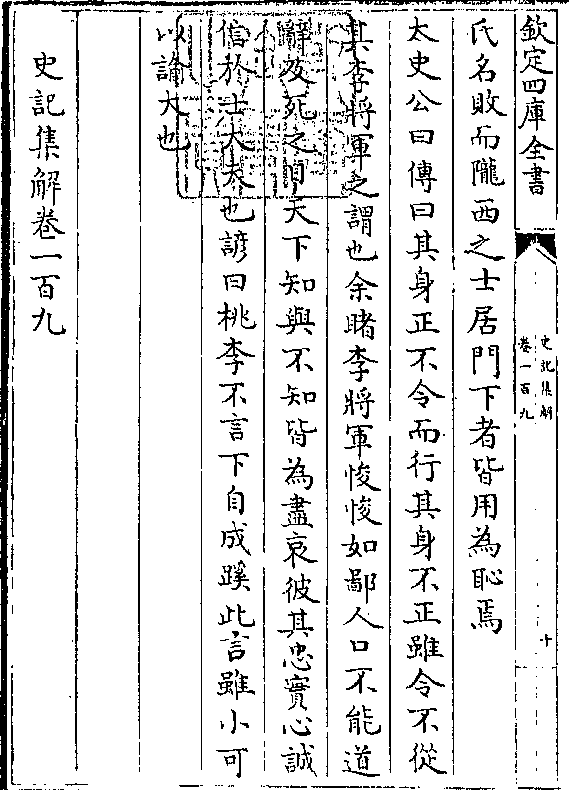 欽定四庫全書
史記集解
卷一百九
十
氏名敗而隴西之士居門下者皆用為恥焉
太史公曰傳曰其身正不令而行其身不正雖令不從
其李將軍之謂也余睹李將軍悛悛如鄙人口不能道
辭及死之日天下知與不知皆為盡哀彼其忠實心誠
信於士大夫也諺曰桃李不言下自成蹊此言雖小可
以諭大也
史記集解卷一百九